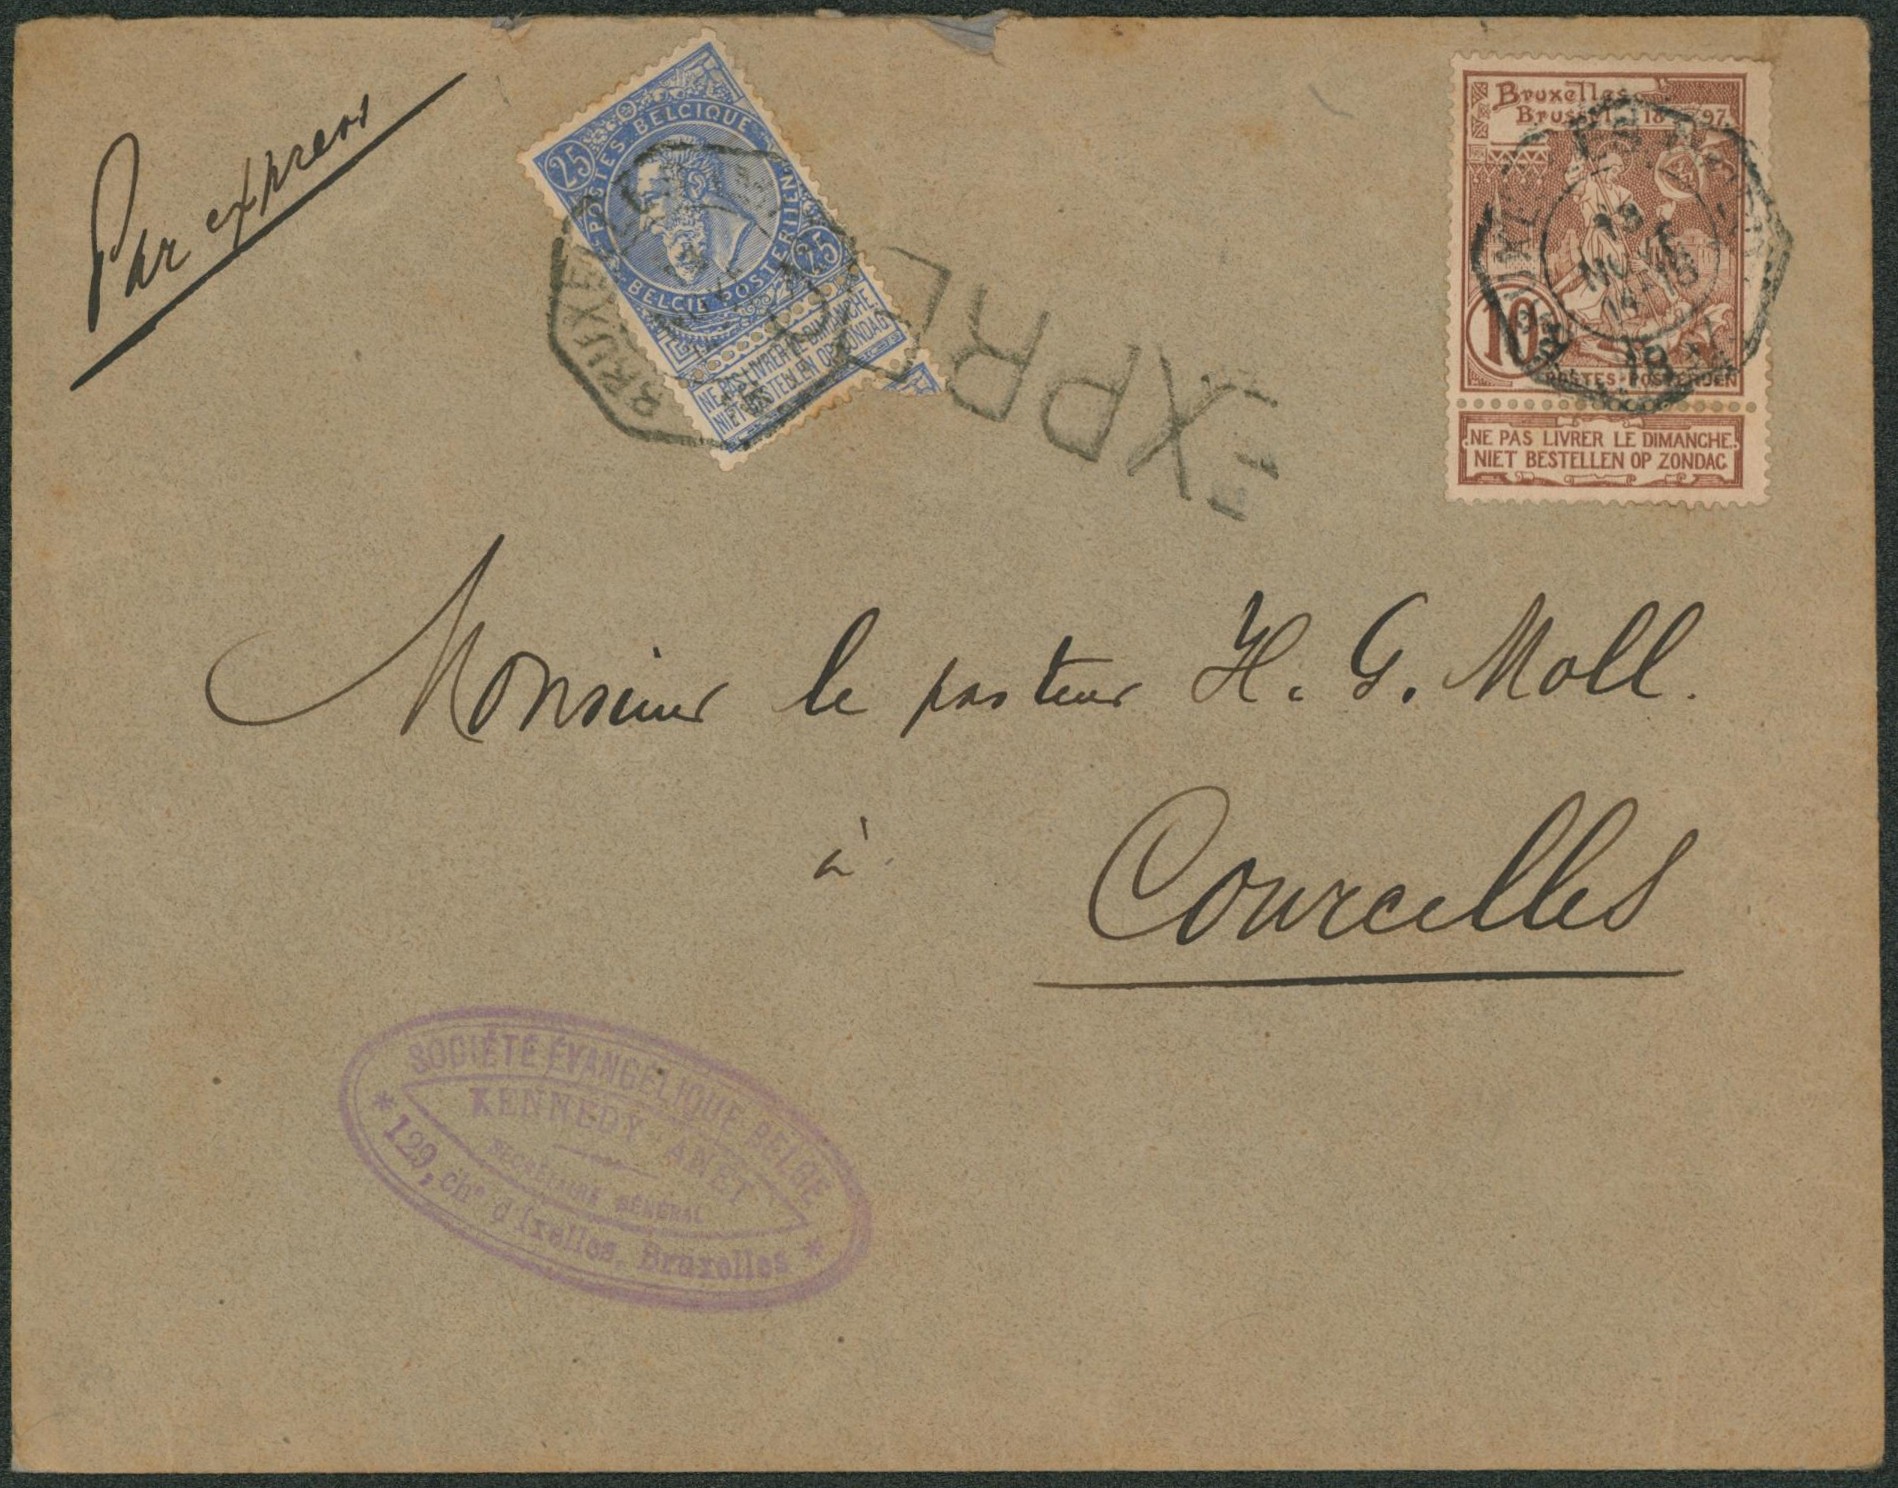 Par express
25
POSTES BELGIQUE
BELGIE POSTERIJEN
25
NE PAS LIVRER LE DIMANCHE
NIET BESTELLEN OP ZONDAG
BRUXELLES
EXPRE
Bruxelles
Brussel 1897
10
POSTES-POSTERIJEN
13
NOVE
14-15
18
NE PAS LIVRER LE DIMANCHE.
NIET BESTELLEN OP ZONDAG
Monsieur le pasteur H. G. Moll.
à
Courcelles
SOCIÉTÉ ÉVANGÉLIQUE BELGE
KENNEDY ANET
SECRÉTAIRE GÉNÉRAL
* 129, chée d'Ixelles, Bruxelles *